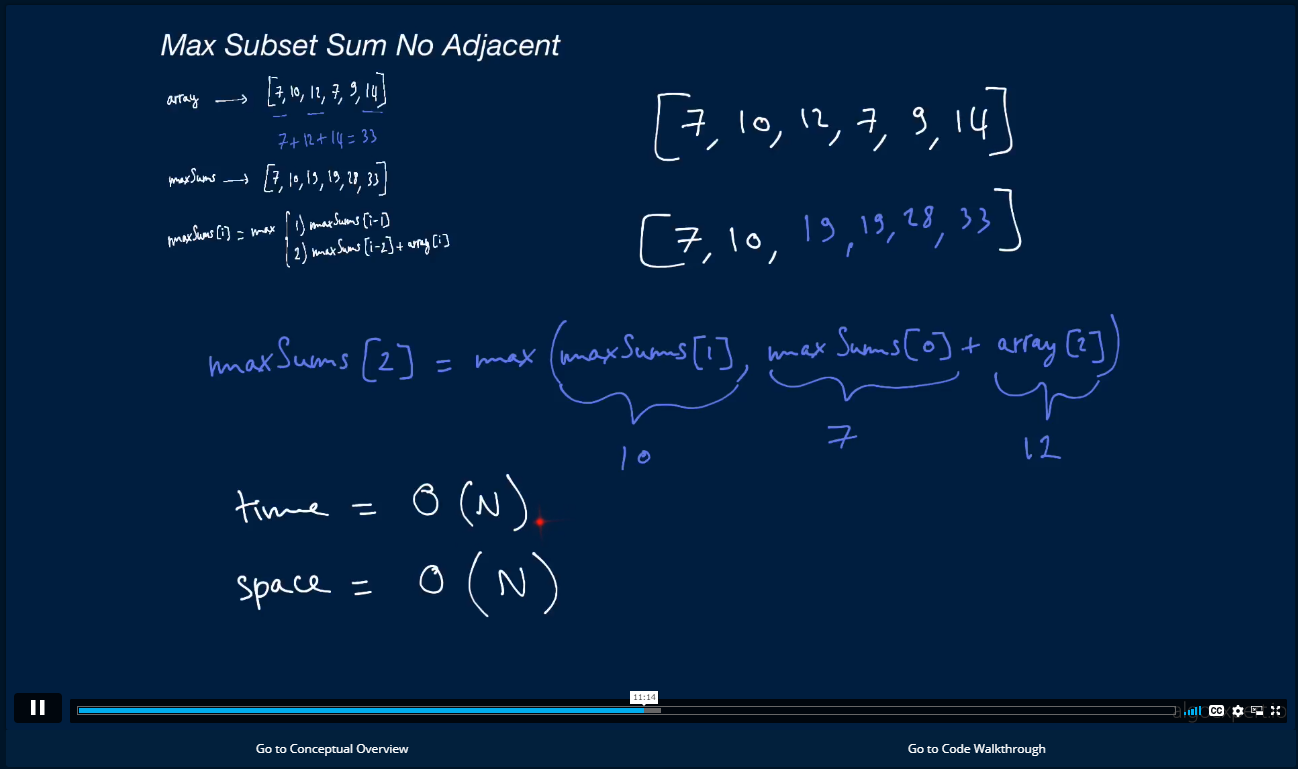 Max Subset Sum No Adjacent
array → [7, 10, 12, 7, 9, 14]
7+12+14=33
maxSums → [7, 10, 19, 19, 28, 33]
maxSums[i] = max { 1) maxSums[i-1]
2) maxSums[i-2] + array[i]
[7, 10, 12, 7, 9, 14]
[7, 10, 19, 19, 28, 33]
maxSums[2] = max(maxSums[1], maxSums[0] + array[2])
10 7 12
time = O(N)
space = O(N)
11:14
CC
Go to Conceptual Overview
Go to Code Walkthrough